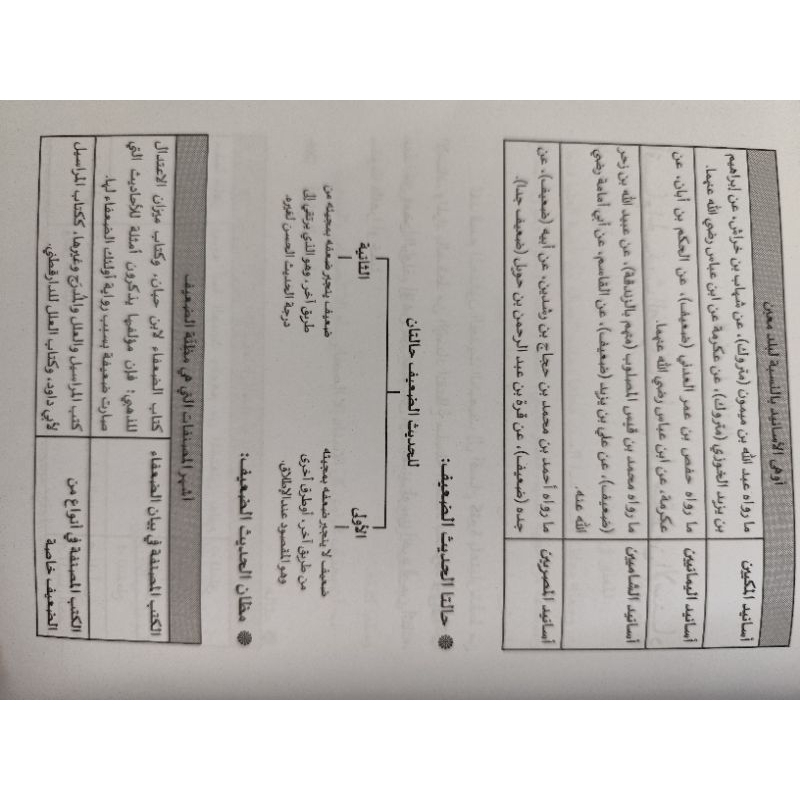 أوهى الأسانيد بالنسبة لبلد معين
أسانيد المكيين
ما رواه عبد الله بن ميمون (متروك)، عن شهاب بن خراش، عن إبراهيم
بن يزيد الخوزي (متروك)، عن عكرمة عن ابن عباس رضي الله عنهما.
أسانيد اليمانيين
ما رواه حفص بن عمر العدني (ضعيف)، عن الحكم بن أبان، عن
عكرمة، عن ابن عباس رضي الله عنهما.
أسانيد الشاميين
ما رواه محمد بن قيس المصلوب (متهم بالزندقة)، عن عبيد الله بن زحر
(ضعيف)، عن علي بن يزيد (ضعيف)، عن القاسم، عن أبي أمامة رضي
الله عنه.
أسانيد المصريين
ما رواه أحمد بن محمد بن حجاج بن رشدين، عن أبيه (ضعيف)، عن
جده (ضعيف)، عن قرة بن عبد الرحمن بن حويل (ضعيف جدا).
حالتا الحديث الضعيف:
للحديث الضعيف حالتان
الأولى
ضعيف لا ينجبر ضعفه بمجيئه
من طريق آخر، أو طرق أخرى
وهو المقصود عند الإطلاق.
الثانية
ضعيف ينجبر ضعفه بمجيئه من
طريق آخر، وهو الذي يرتقي إلى
درجة الحديث الحسن لغيره.
مظان الحديث الضعيف:
أشهر المصنفات التي هي مظنة الضعيف
الكتب المصنفة في بيان الضعفاء
كتاب الضعفاء لابن حبان، وكتاب ميزان الاعتدال
للذهبي؛ فإن مؤلفيها يذكرون أمثلة للأحاديث التي
صارت ضعيفة بسبب رواية أولئك الضعفاء لها.
الكتب المصنفة في أنواع من
الضعيف خاصة
كتب المراسيل والعلل والمُدرَج وغيرها، ككتاب المراسيل
لأبي داود، وكتاب العلل للدارقطني.